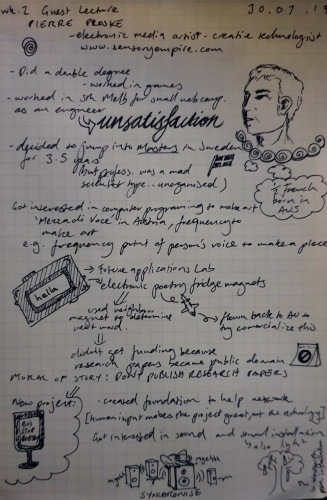 wk.2 Guest Lecture
30.07.1
PIERRE PROSKE
- electronic media artist - creative technologist
www.sensoryempire.com
- Did a double degree
- worked in games
- worked in Sth Melb for small web comp.
as an engineer
unsatisfaction
- decided to jump into Masters in Sweden
for 3.5 years
(but profess. was a mad
scientist type - unorganised)
½ French
born in
AUS
Got interested in computer programming to make art
'Messa di Voce' in Austria, frequency to
make art
e.g. frequency print of person's voice to make a piece
hello
→ future applications Lab
→ electronic poetry fridge magnets
used neighbor
magnet to determine
next word.
→ flown back to AU to
try comercialize this
didn't get funding because
research papers became public domain
MORAL OF STORY: DON'T PUBLISH RESEARCH PAPERS
New project:
- created foundation to help network
[human input makes the project great, not the technology]
BUS
STOP
Got interested in sound and sound installations
also light
SYNCHRONISE